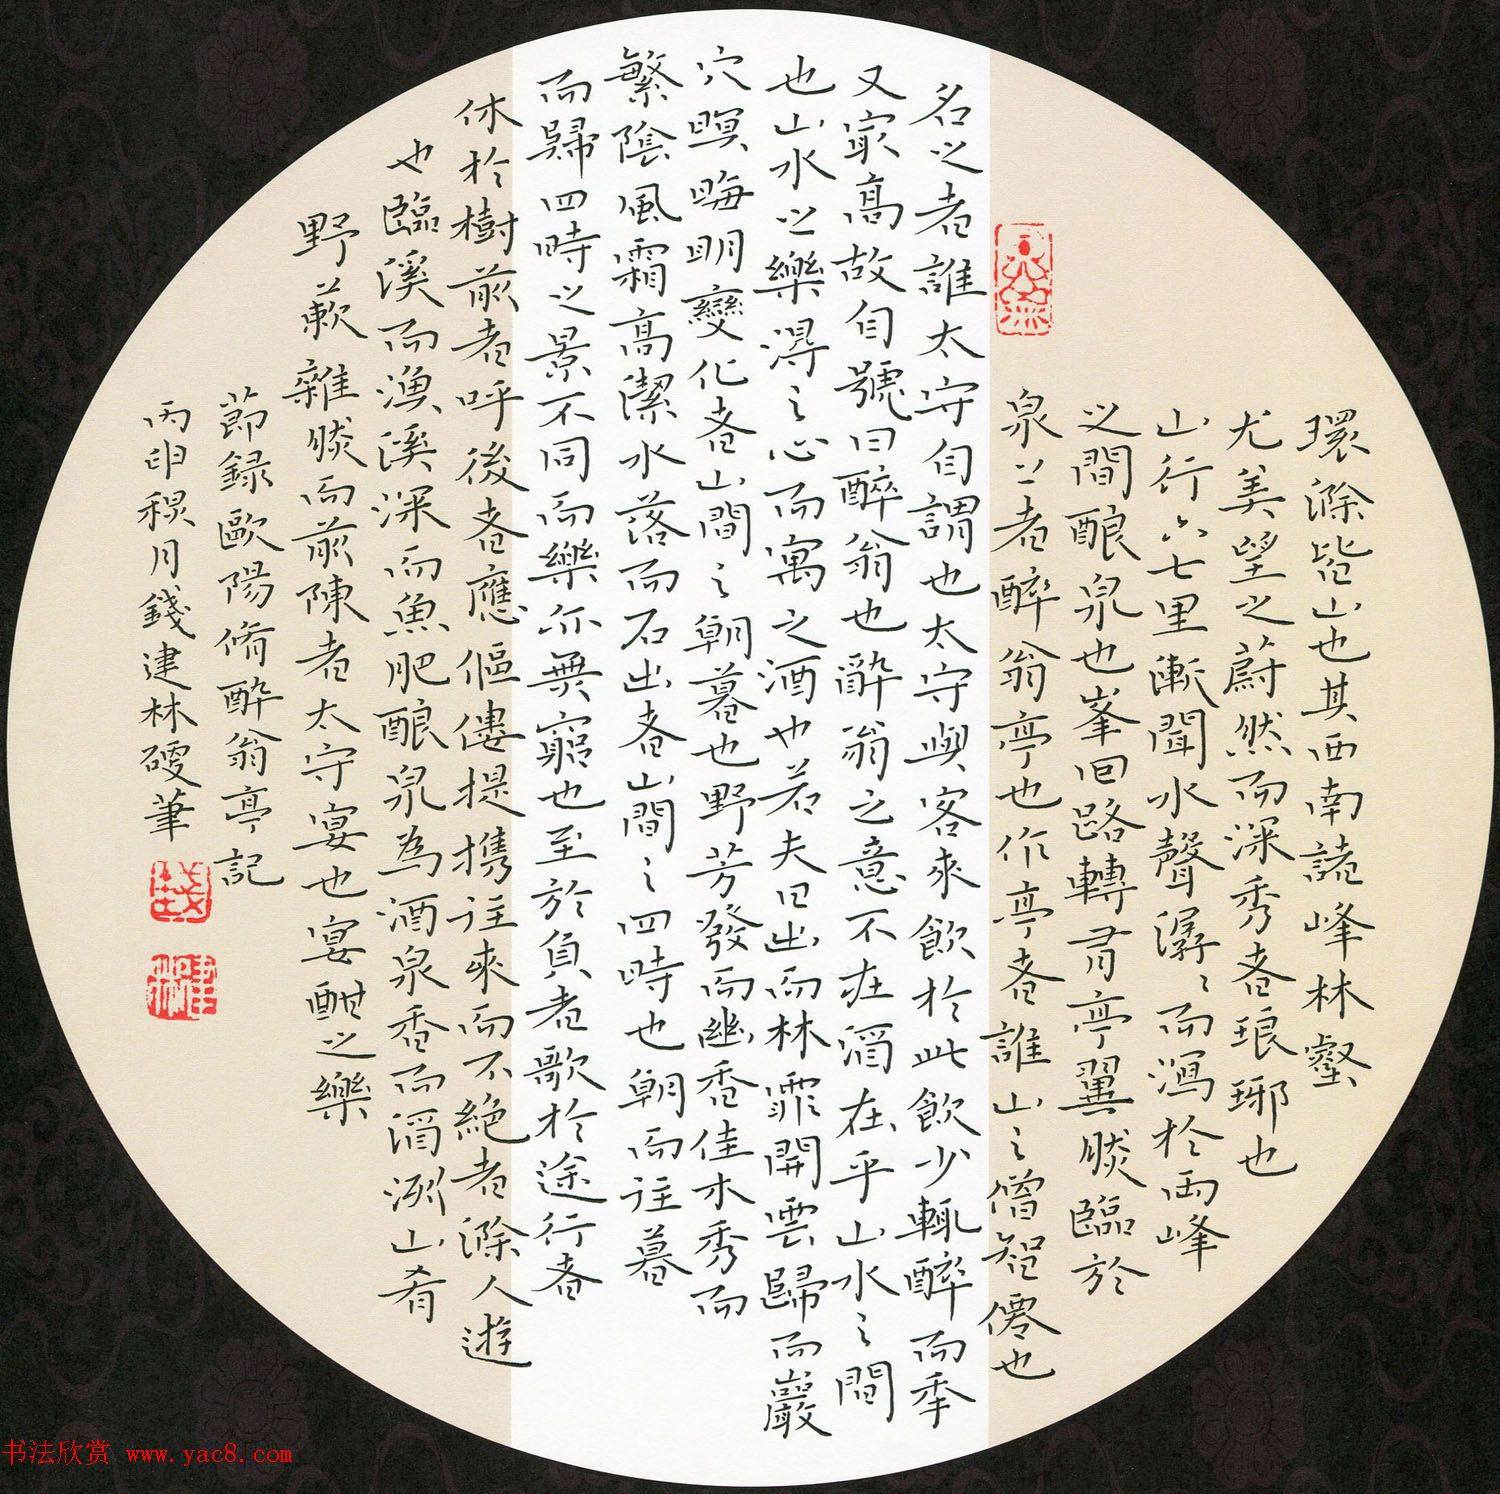 環滁皆山也其西南諸峰林壑
尤美望之蔚然而深秀者琅琊也
山行六七里漸聞水聲潺〻而瀉於兩峰
之間釀泉也峯回路轉有亭翼然臨於
泉上者醉翁亭也作亭者誰山之僧智僊也
名之者誰太守自謂也太守與客來飲於此飲少輒醉而年
又最高故自號曰醉翁也醉翁之意不在酒在乎山水之間
也山水之樂得之心而寓之酒也若夫日出而林霏開雲歸而巖
穴暝晦明變化者山間之朝暮也野芳發而幽香佳木秀而
繁陰風霜高潔水落而石出者山間之四時也朝而往暮
而歸四時之景不同而樂亦無窮也至於負者歌於途行者
休於樹前者呼後者應傴僂提携往來而不絕者滁人遊
也臨溪而漁溪深而魚肥釀泉為酒泉香而酒洌山肴
野蔌雜然而前陳者太守宴也宴酣之樂
節錄歐陽脩醉翁亭記
丙申秋月錢建林硬筆
书法欣赏 www.yac8.com